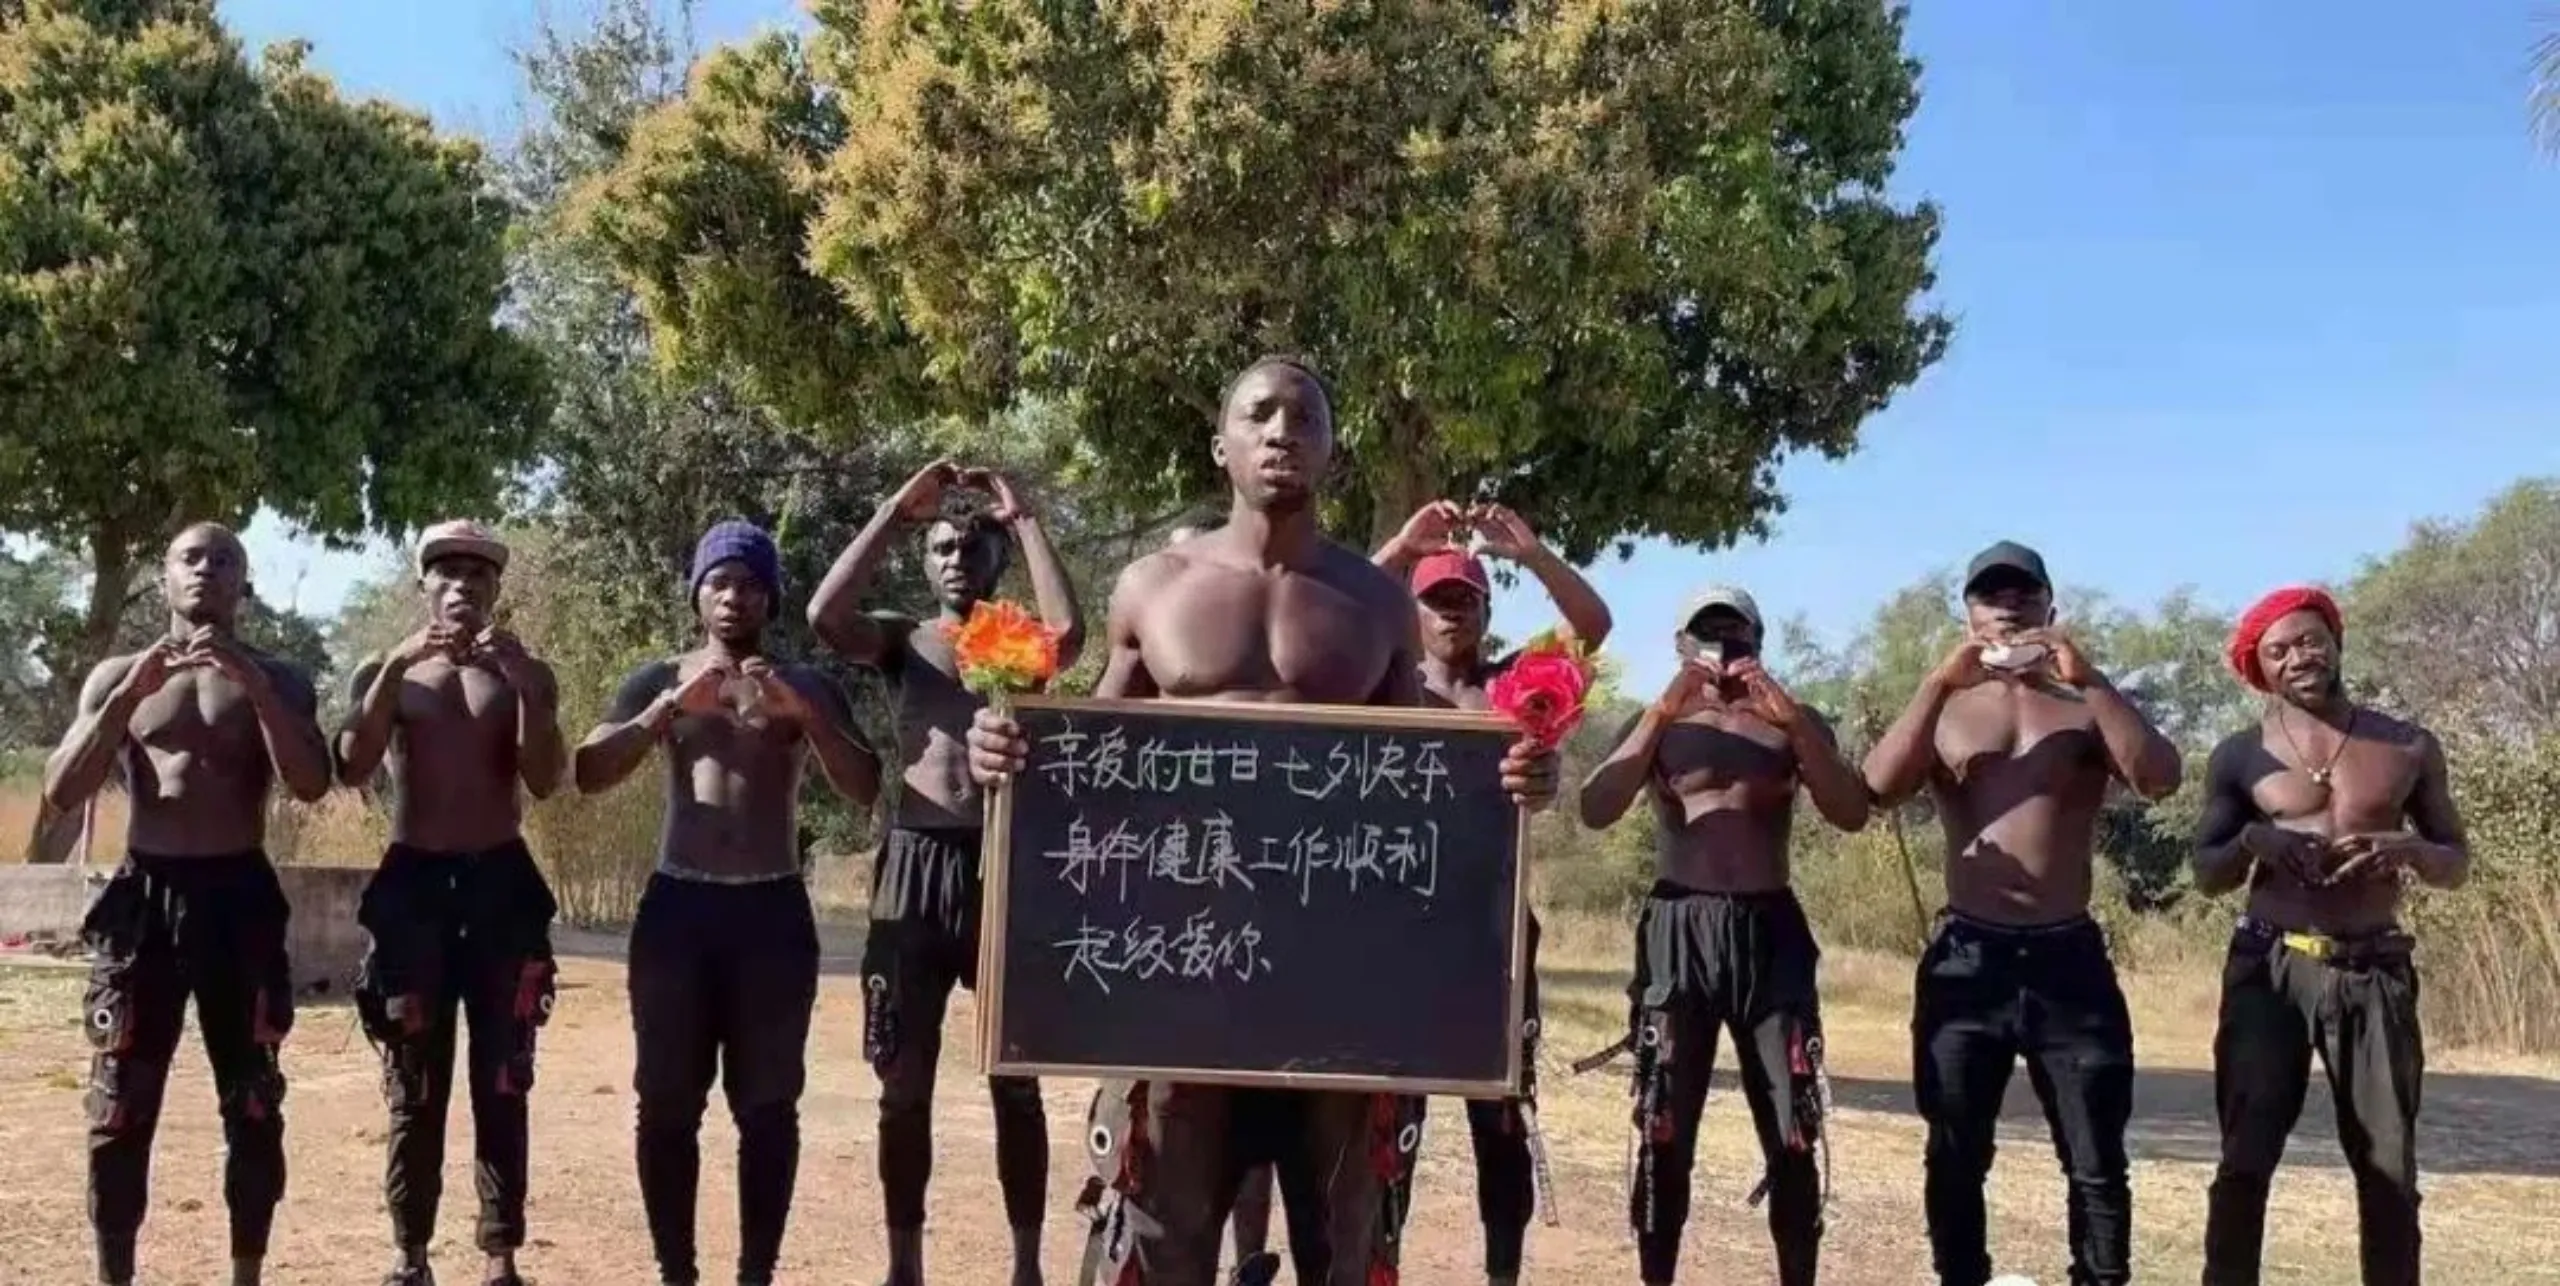 亲爱的甘甘 七夕快乐
身体健康 工作顺利
超级爱你